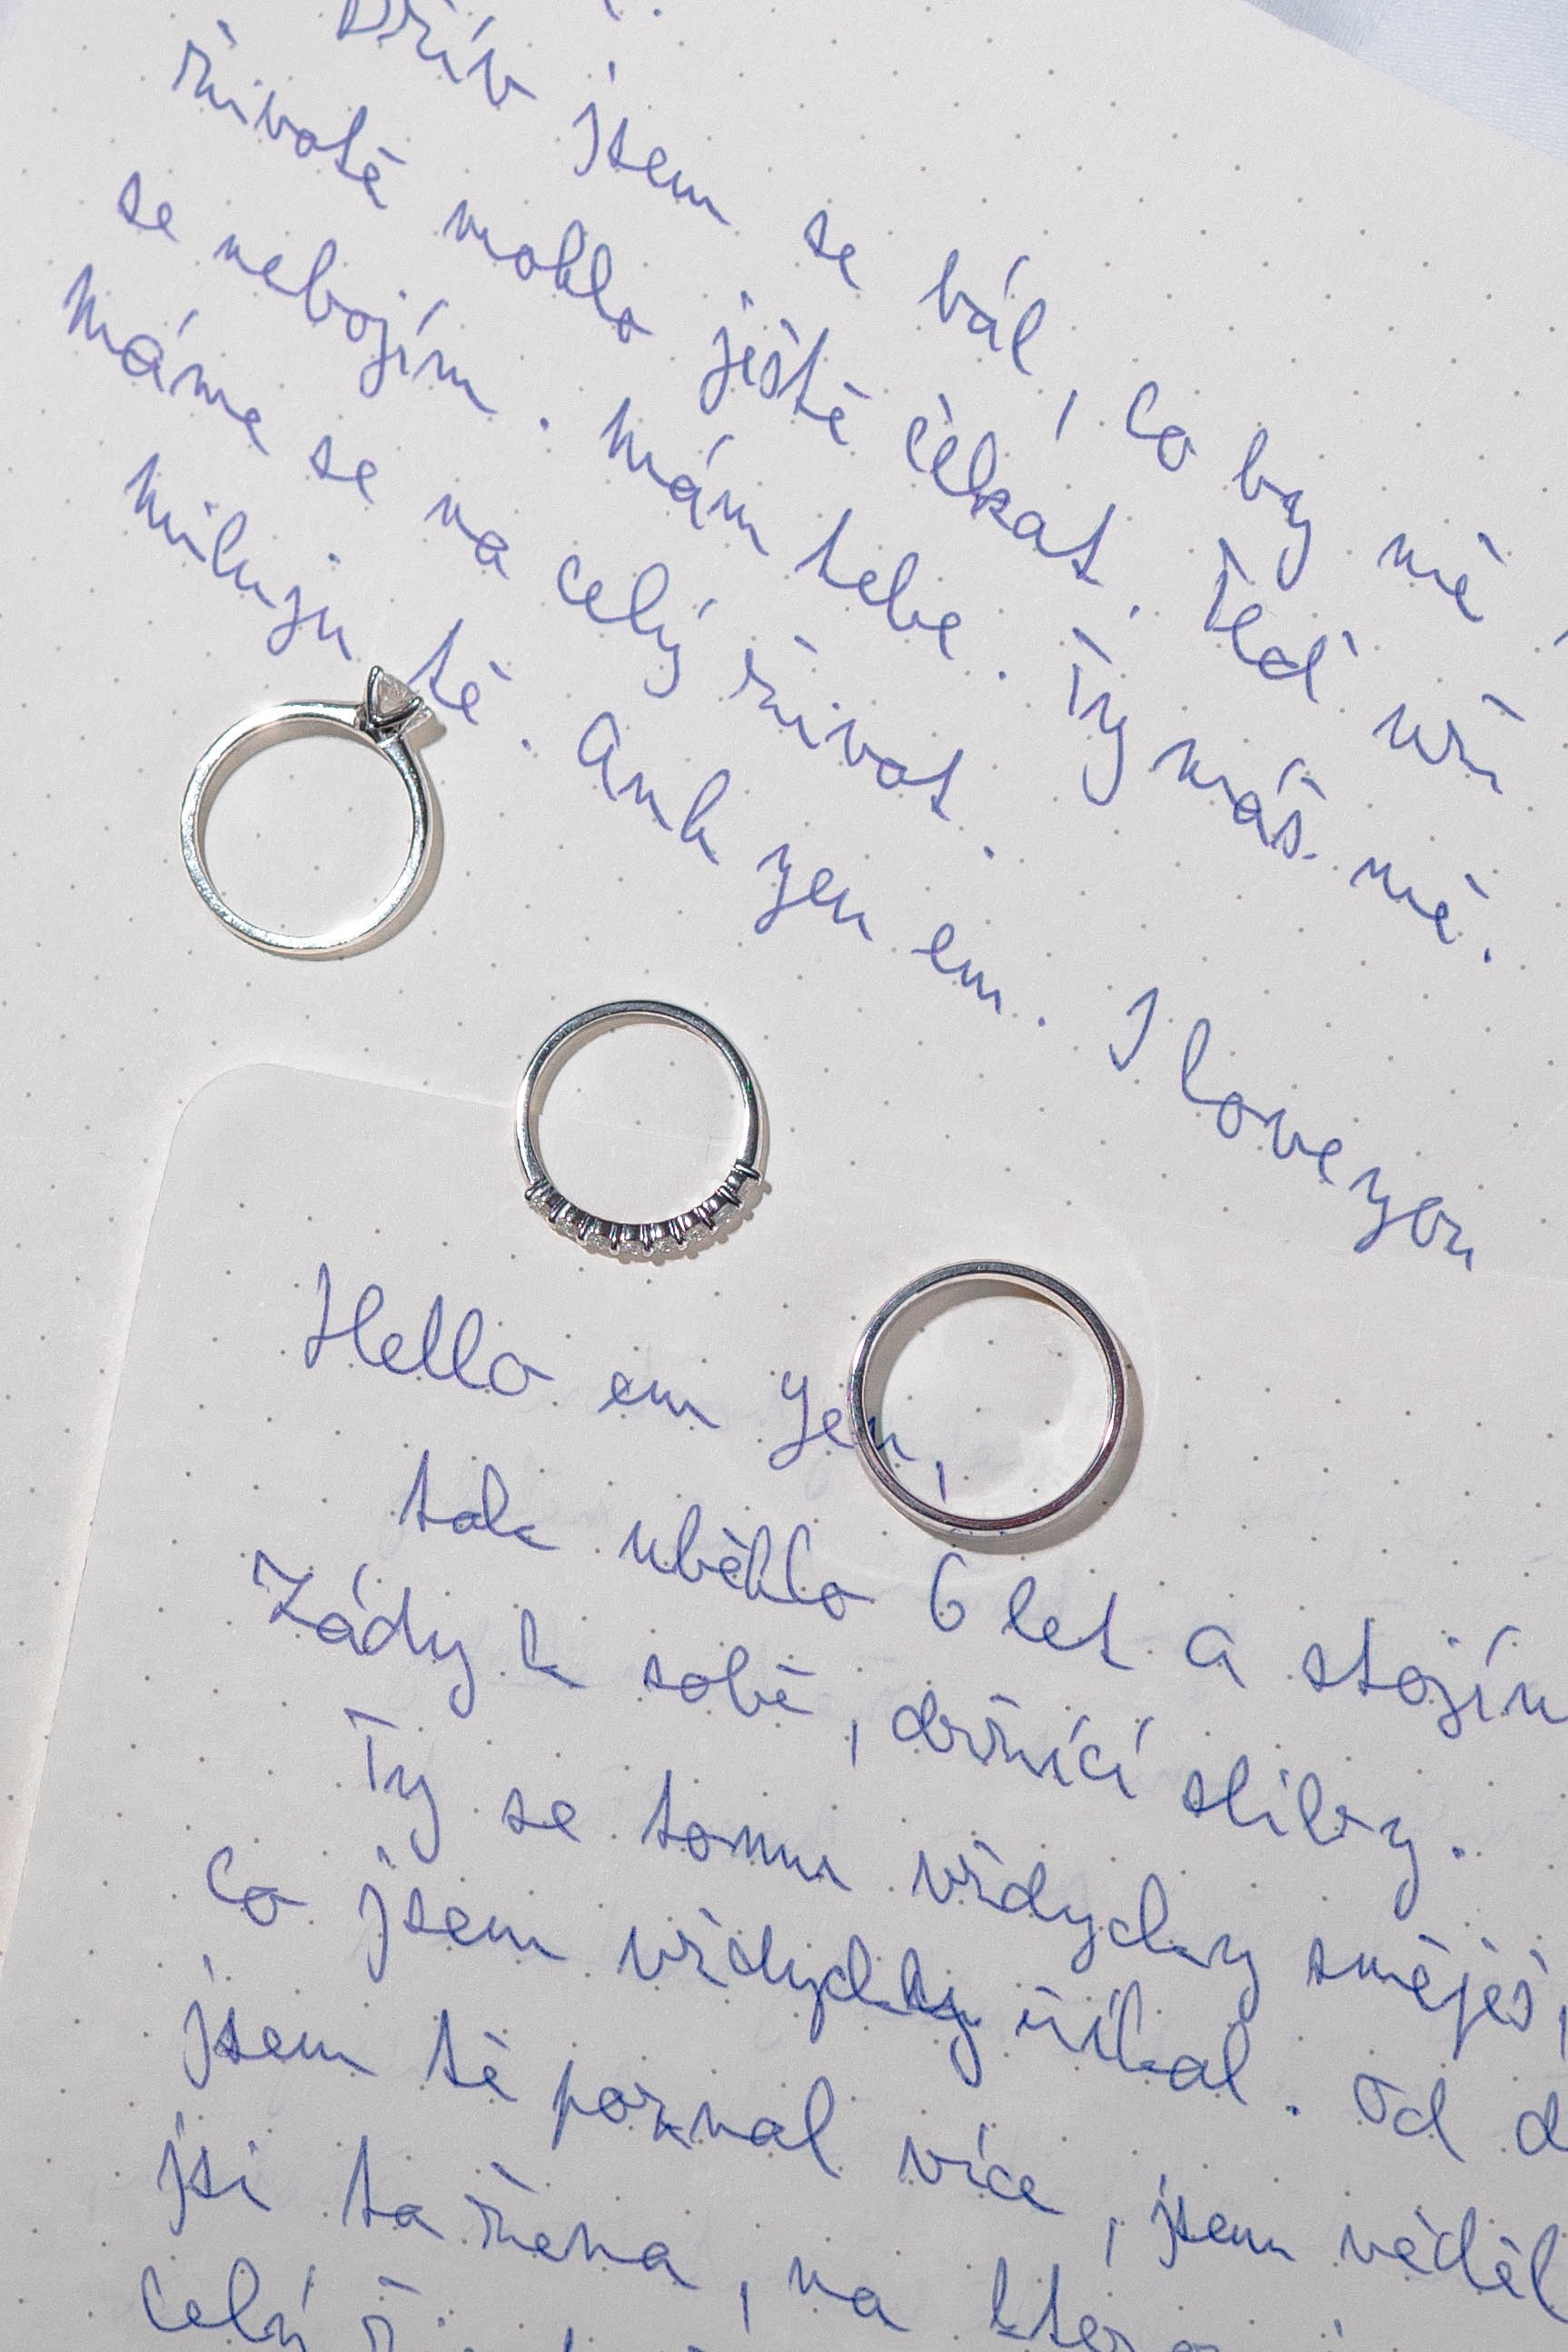 Dřív jsem se bál, co by mě
životě mohlo ještě čekat. Teď už
se nebojím. Mám tebe. Ty máš mě.
Máme se na celý život.
Miluju tě. Anh yeu em. I love you
Hello em Yen,
tak uběhlo 6 let a stojím
Zády k sobě, držící sliby.
Ty se tomu vždycky směješ,
co jsem vždycky říkal. Od d
jsem tě poznal více, jsem věděl
jsi ta žena, na
celý